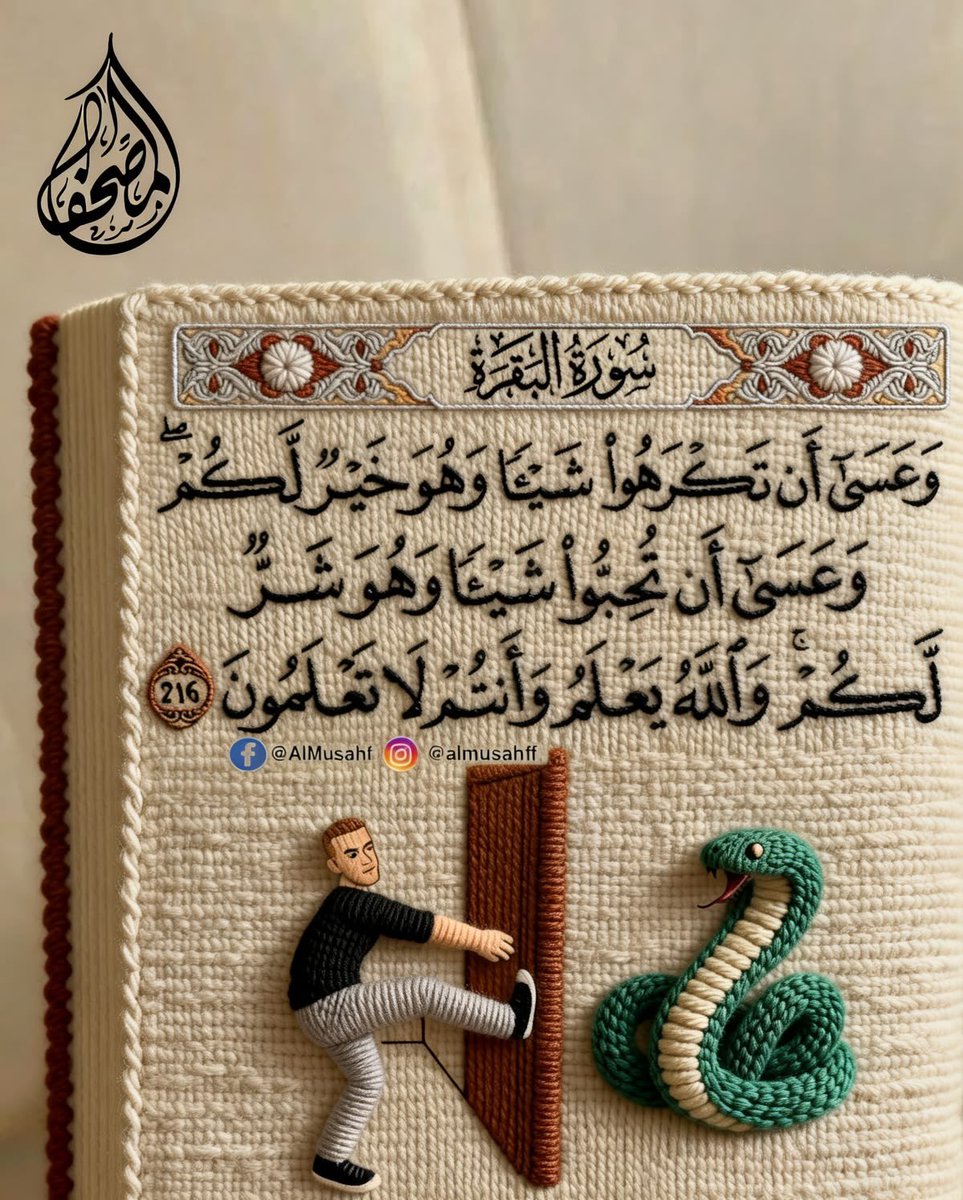 المصحف
سُورَةُ البَقَرَةِ
وَعَسَىٰٓ أَن تَكْرَهُوا۟ شَيْـًٔا وَهُوَ خَيْرٌ لَّكُمْ ۖ
وَعَسَىٰٓ أَن تُحِبُّوا۟ شَيْـًٔا وَهُوَ شَرٌّ
لَّكُمْ ۚ وَٱللَّهُ يَعْلَمُ وَأَنتُمْ لَا تَعْلَمُونَ 216
@AlMusahf @almusahff